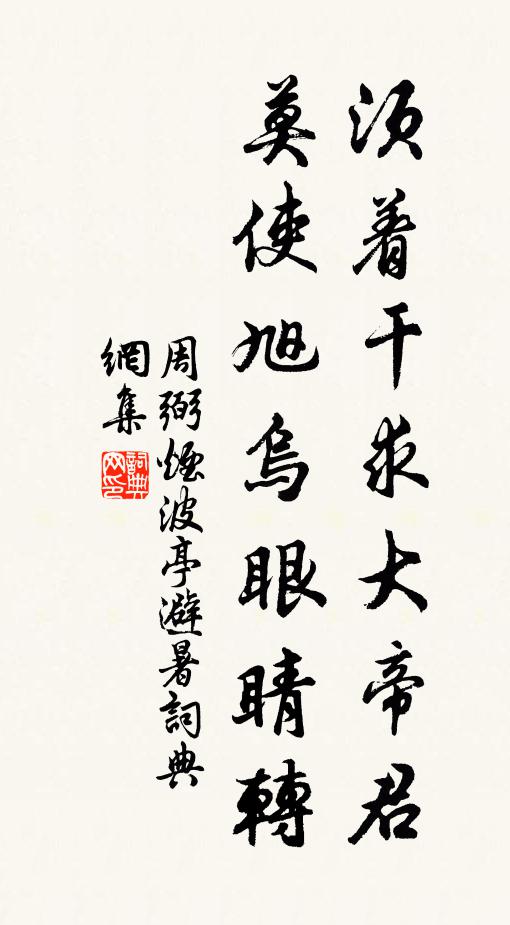 須着干求大帝君
莫使旭烏眼睛轉
周弼煙波亭避暑詞典
網集
詞典網印